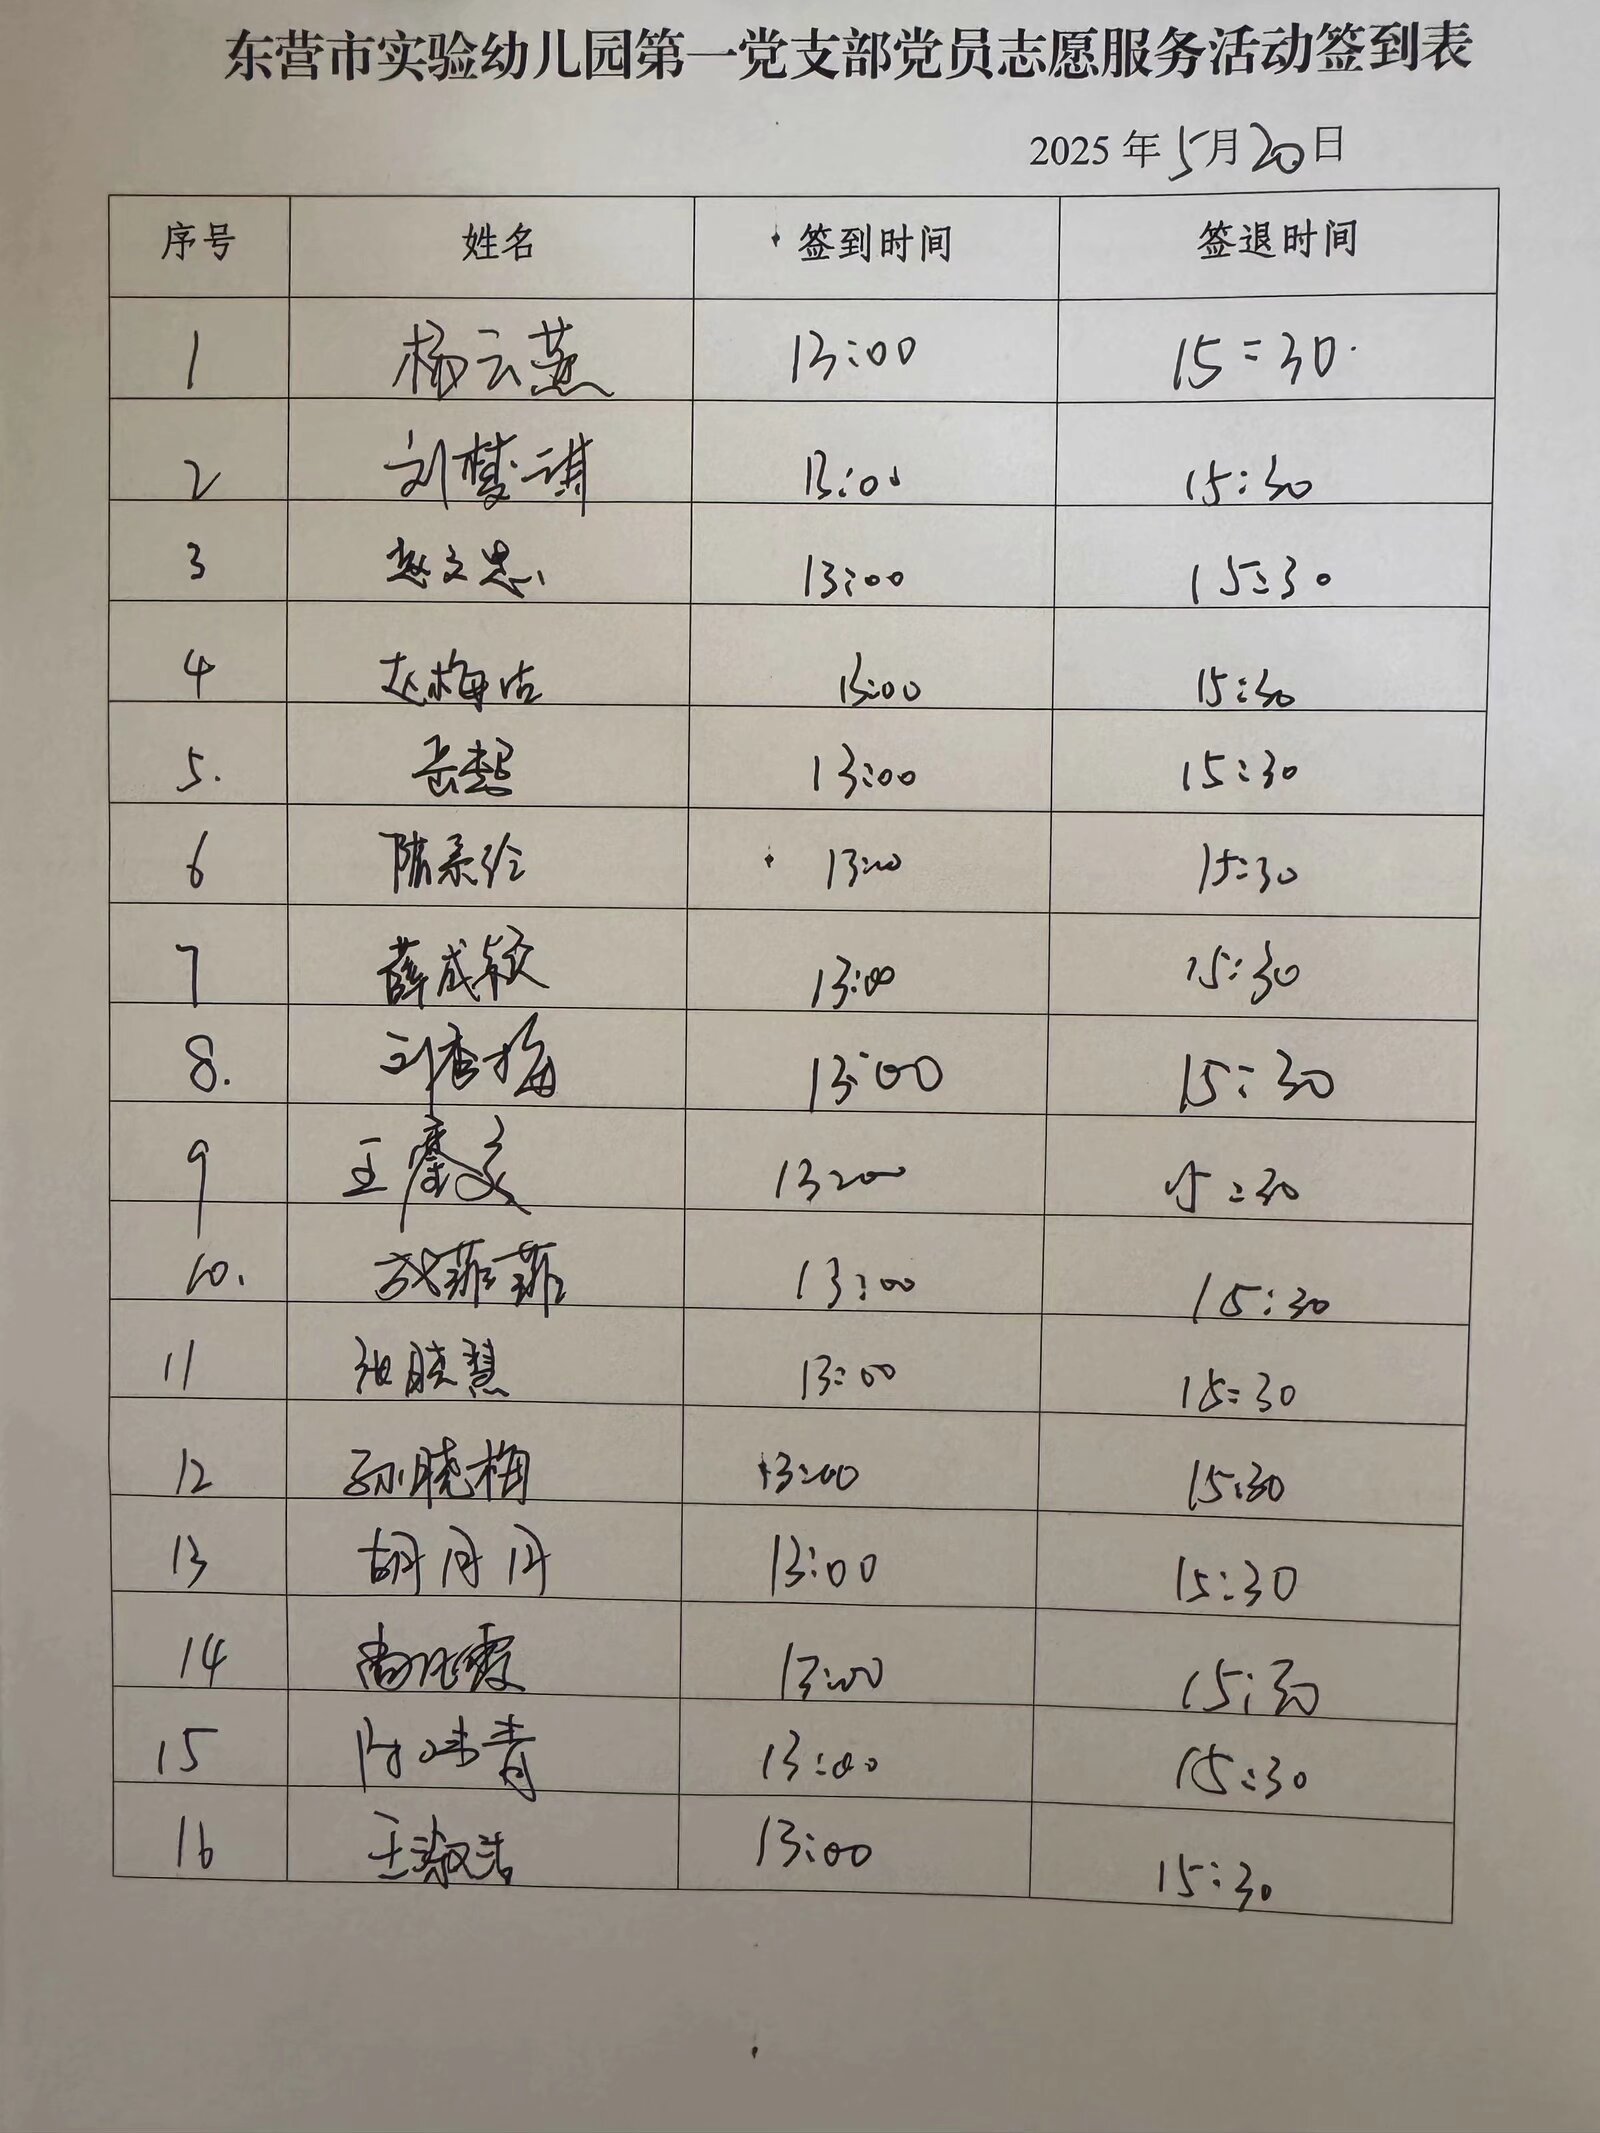 东营市实验幼儿园第一党支部党员志愿服务活动签到表
2025 年 5 月 20 日
序号 姓名 签到时间 签退时间
1 杨云燕 13:00 15:30
2 刘梦琪 13:00 15:30
3 赵文思 13:00 15:30
4 赵梅洁 13:00 15:30
5. 岳懿 13:00 15:30
6 13:00 15:30
7 薛成颖 13:00 15:30
8. 刘杏梅 13:00 15:30
9 王 13:00 15:30
10. 战菲菲 13:00 15:30
11 张晓慧 13:00 15:30
12 孙晓梅 13:00 15:30
13 胡丹丹 13:00 15:30
14 13:00 15:30
15 13:00 15:30
16 王淑洁 13:00 15:30